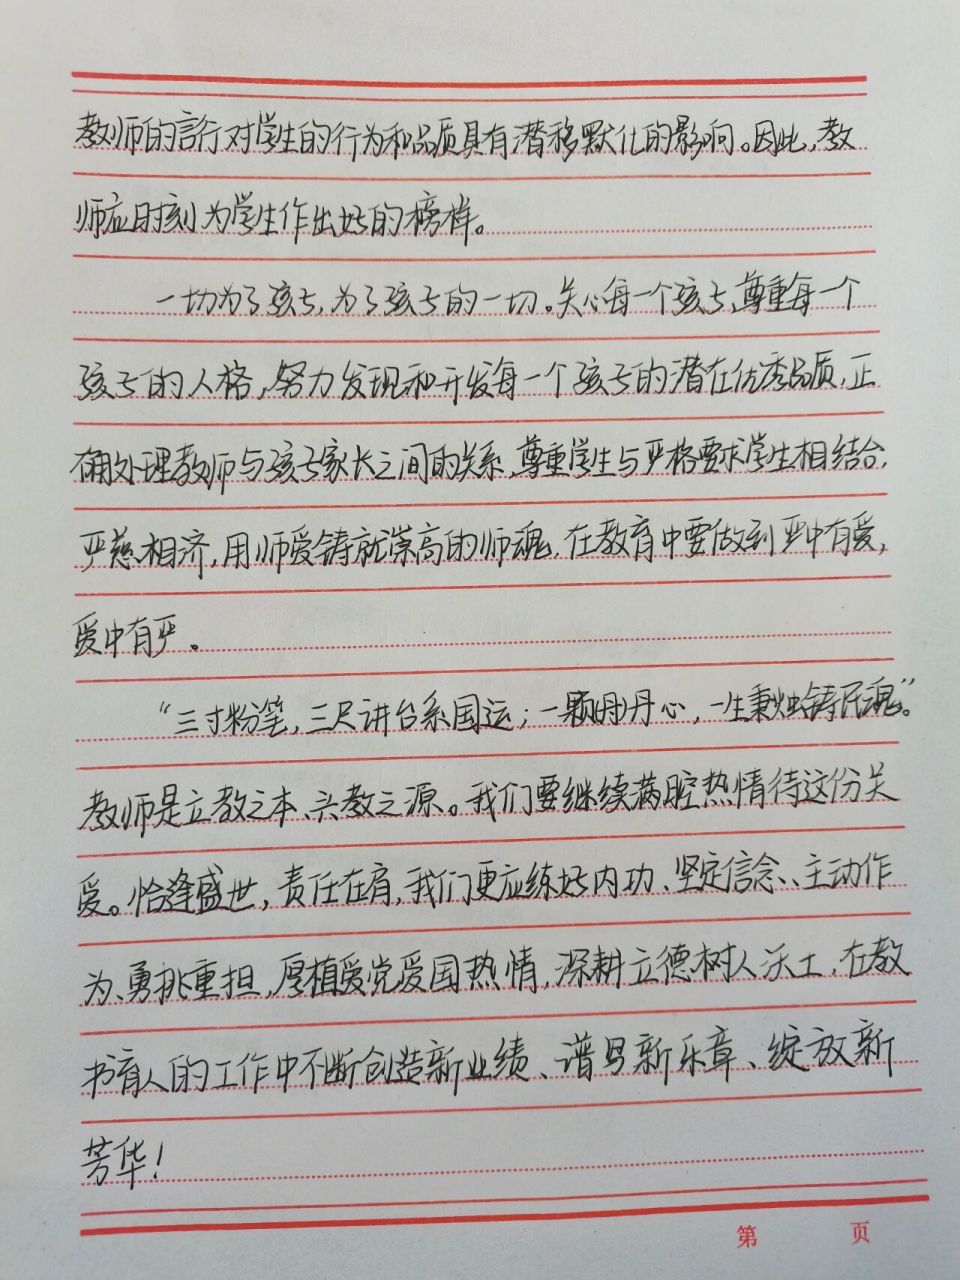 教师的言行对学生的行为和品质具有潜移默化的影响。因此,教
师应时刻为学生作出好的榜样。
一切为了孩子,为了孩子的一切。关心每一个孩子、尊重每一个
孩子的人格,努力发现和开发每一个孩子的潜在优秀品质,正
确处理教师与孩子家长之间的关系、尊重学生与严格要求学生相结合,
严慈相济,用师爱铸就崇高的师魂,在教育中要做到严中有爱,
爱中有严。
“三寸粉笔,三尺讲台系国运;一颗丹心,一生秉烛铸民魂”。
教师是立教之本、兴教之源。我们要继续满腔热情待这份关
爱。恰逢盛世,责任在肩,我们更应练好内功、坚定信念、主动作
为、勇挑重担,厚植爱党爱国热情,深耕立德树人沃土,在教
书育人的工作中不断创造新业绩、谱写新乐章、绽放新
芳华!
第 页